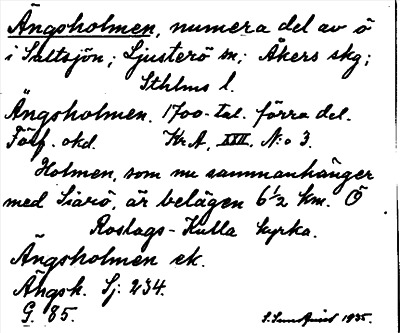 Ängsholmen, numera del av ö
i Saltsjön; Ljusterö sn; Åkers skg;
Sthlms l.
Ängsholmen. 1700-tal. förra del.
Förf. okd. Kr.A. XXII. N:o 3.
Holmen, som nu sammanhänger
med Siarö, är belägen 6 1/2 km. Ö
Roslags-Kulla kyrka.
Ängsholmen ek.
Ängsh. Sj: 234.
G. 85.
1935.